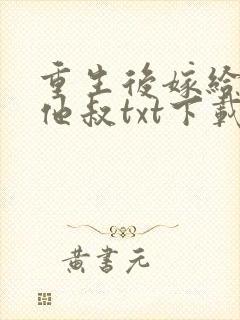 重生後嫁給
他叔txt下載
黃書元